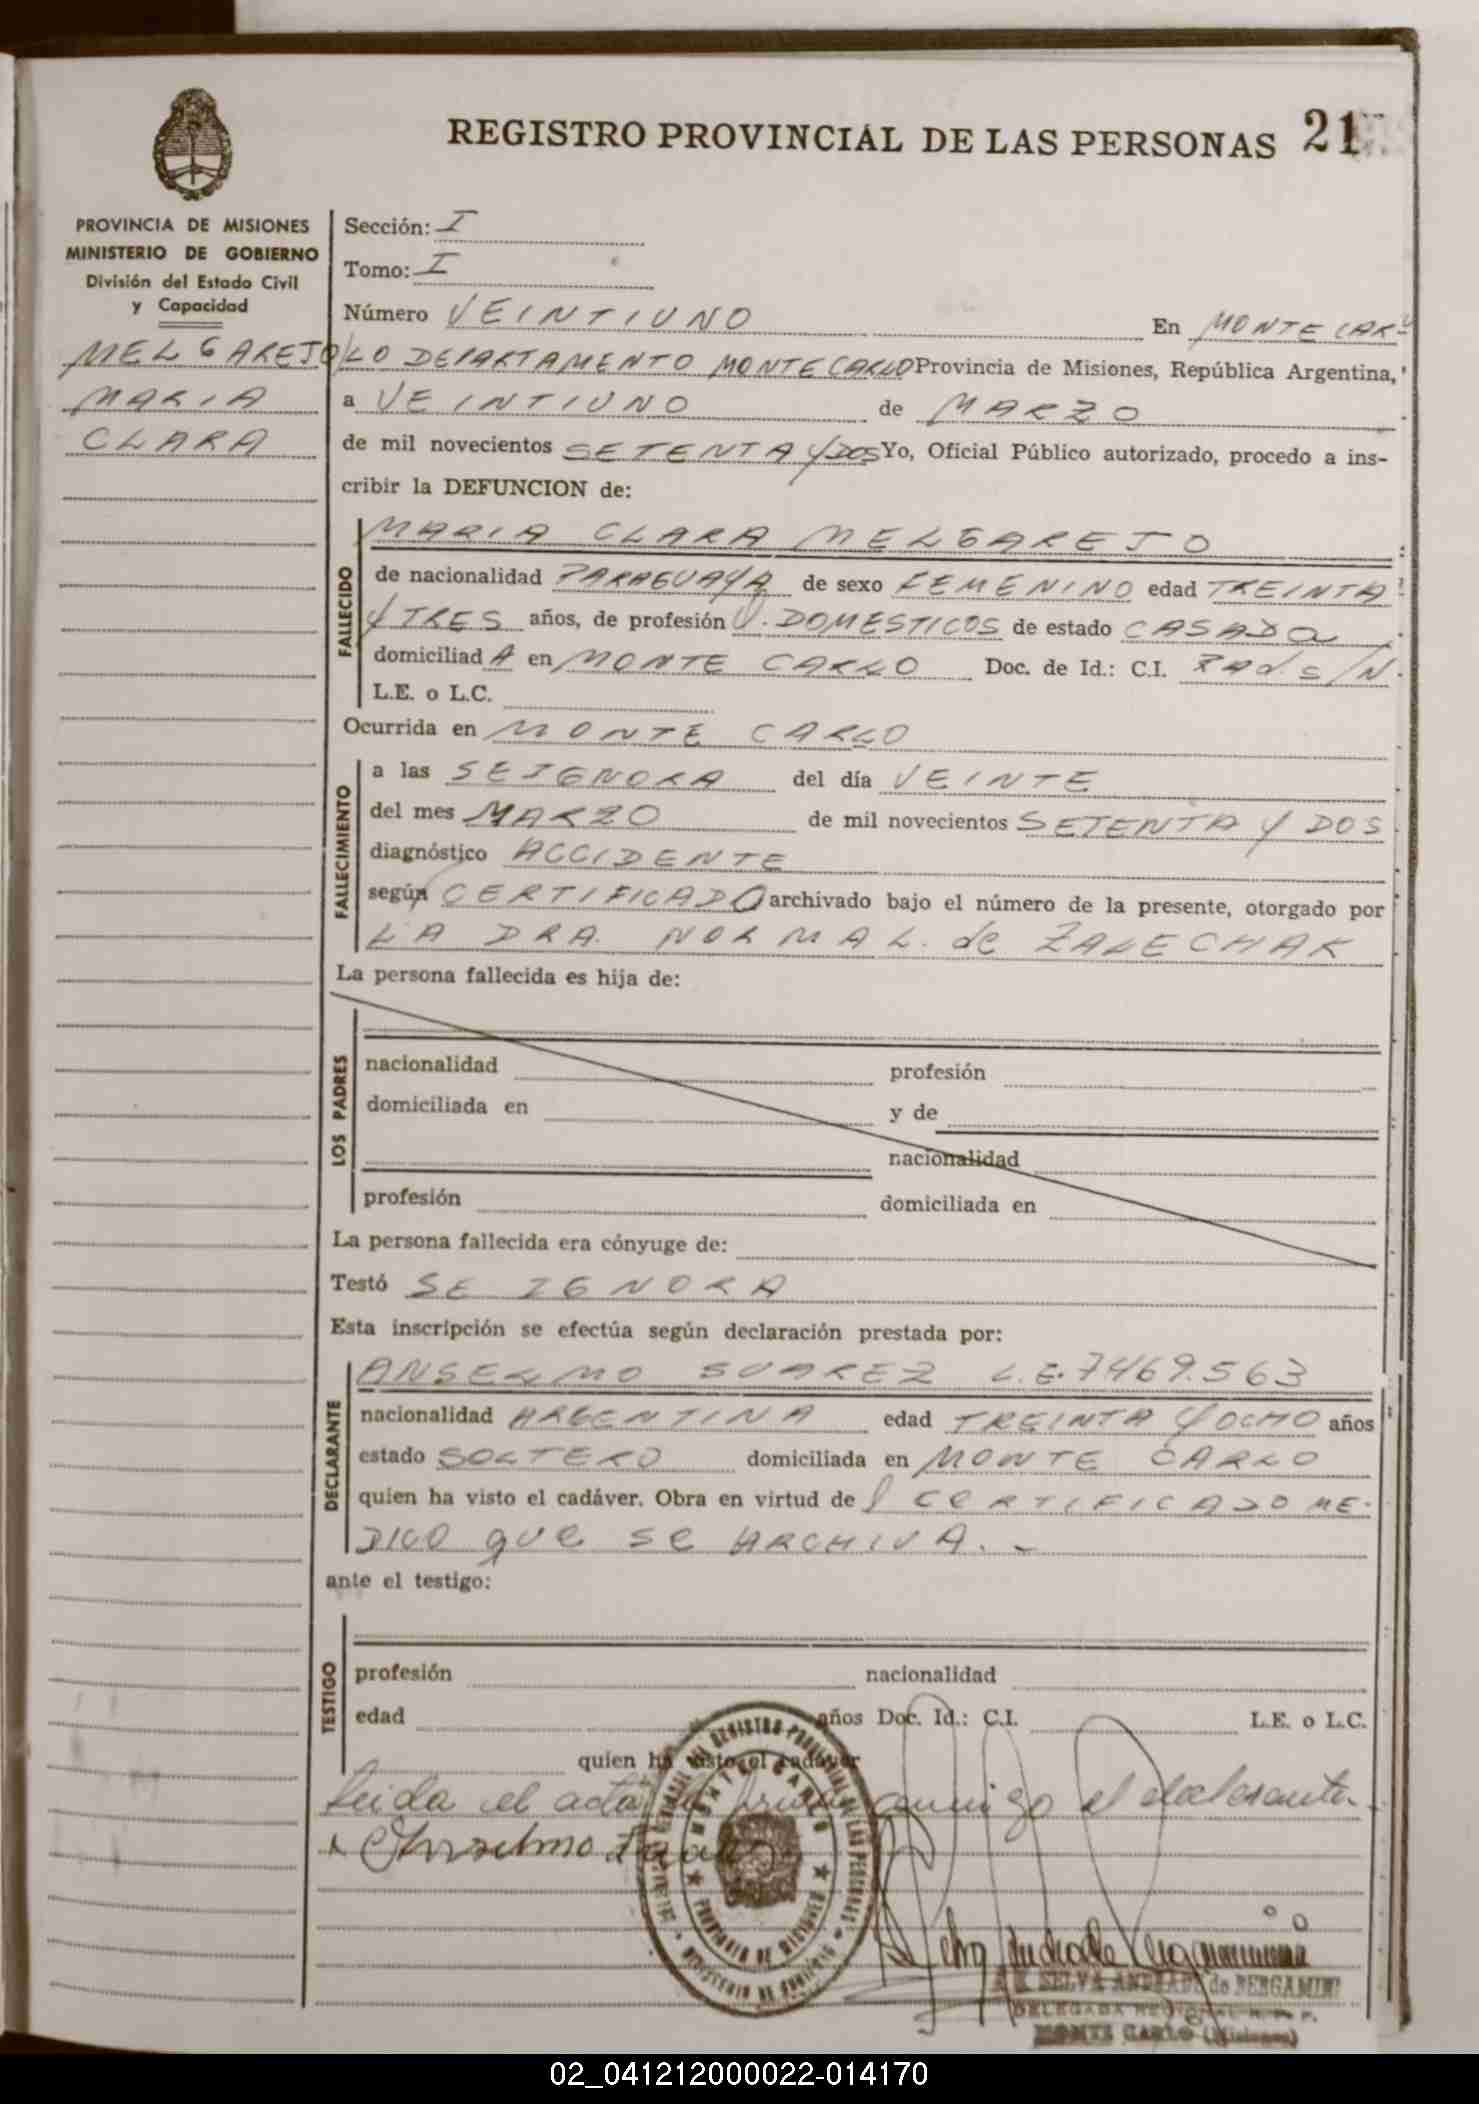 REGISTRO PROVINCIAL DE LAS PERSONAS 21
PROVINCIA DE MISIONES
MINISTERIO DE GOBIERNO
División del Estado Civil
y Capacidad
MELGAREJO
MARIA
CLARA
Sección: I
Tomo: I
Número VEINTIUNO En MONTE CAR
LO DEPARTAMENTO MONTECARLO Provincia de Misiones, República Argentina,
a VEINTIUNO de MARZO
de mil novecientos SETENTA Y DOS Yo, Oficial Público autorizado, procedo a ins-
cribir la DEFUNCION de:
FALLECIDO
MARIA CLARA MELGAREJO
de nacionalidad PARAGUAYA de sexo FEMENINO edad TREINTA
Y TRES años, de profesión Q. DOMESTICOS de estado CASADA
domiciliad A en MONTE CARLO Doc. de Id.: C.I. S/N
L.E. o L.C.
Ocurrida en MONTE CARLO
FALLECIMIENTO
a las SE IGNORA del día VEINTE
del mes MARZO de mil novecientos SETENTA Y DOS
diagnóstico ACCIDENTE
según CERTIFICADO archivado bajo el número de la presente, otorgado por
LA DRA. NORMA L. de ZALECHAK
La persona fallecida es hija de:
LOS PADRES
nacionalidad profesión
domiciliada en y de
nacionalidad
profesión domiciliada en
La persona fallecida era cónyuge de:
Testó SE IGNORA
Esta inscripción se efectúa según declaración prestada por:
DECLARANTE
ANSELMO SUAREZ L.E. 7469.563
nacionalidad ARGENTINA edad TREINTA Y OCHO años
estado SOLTERO domiciliada en MONTE CARLO
quien ha visto el cadáver. Obra en virtud de l CERTIFICADO ME-
DICO que se ARCHIVA. -
ante el testigo:
TESTIGO
profesión nacionalidad
edad años Doc. Id.: C.I. L.E. o L.C.
quien ha visto el cadáver
Leida el acta la firma conmigo el declarante.
Anselmo
MONTE CARLO
PROVINCIA DE MISIONES
SELVA ANDRADE de BERGAMINI
DELEGADA REGIONAL R. P. P.
MONTE CARLO (Misiones)
02_041212000022-014170